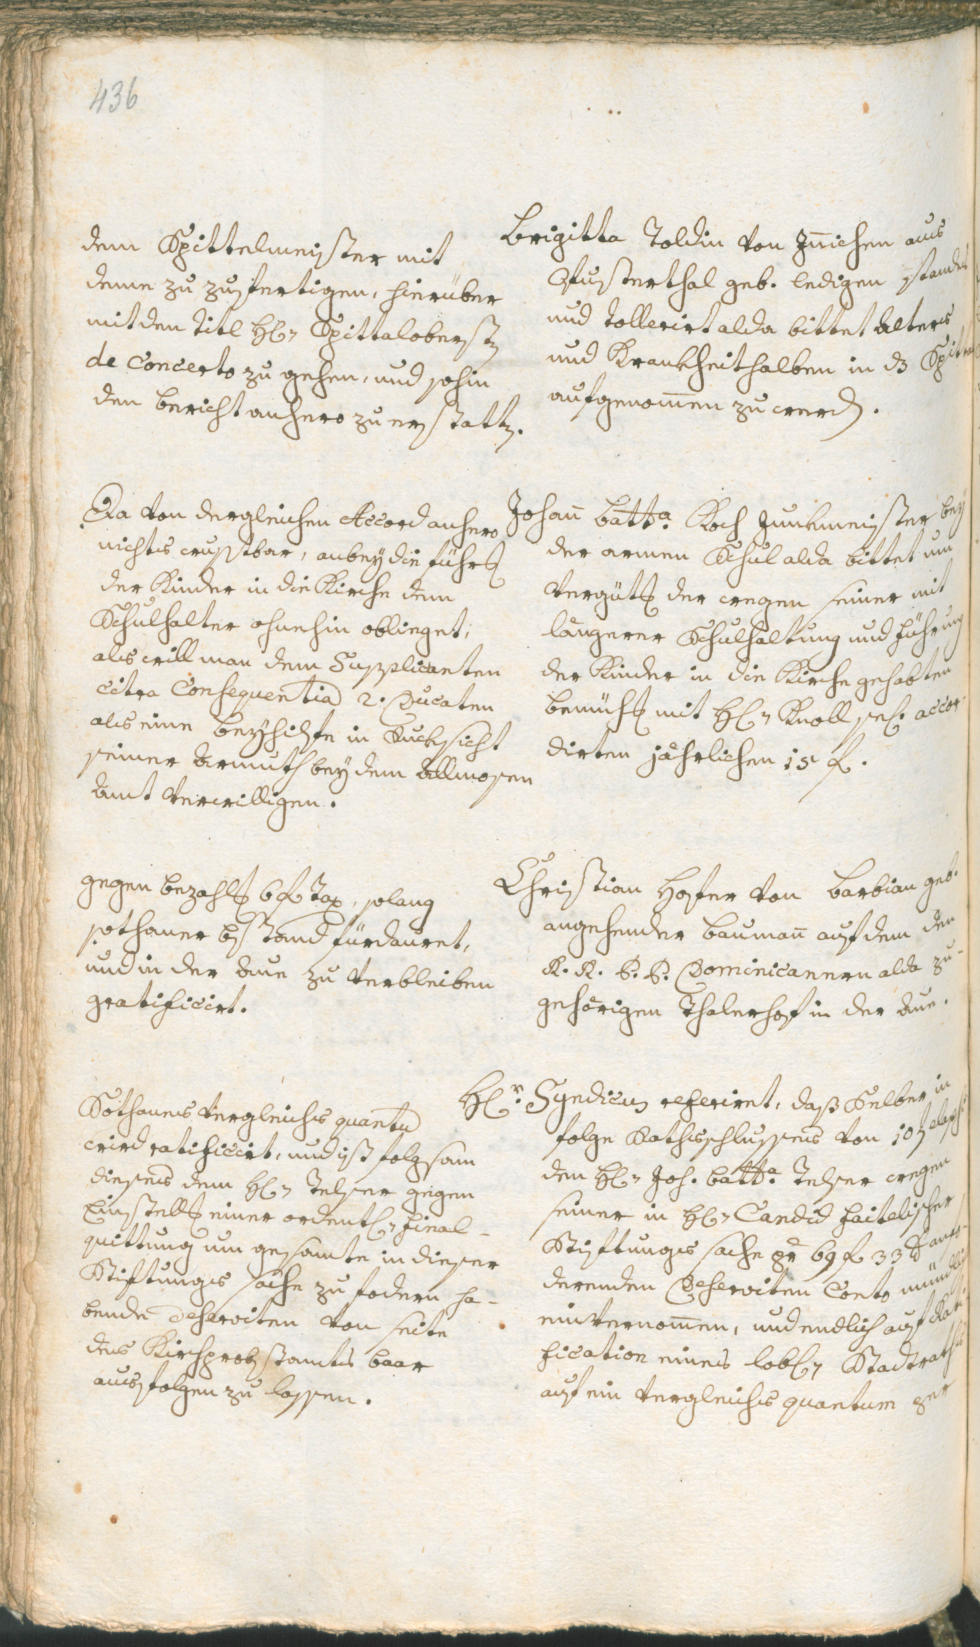 436
dem Spittelmeister mit
deme zu zufertigen, hierüber
mit den Titl H: Spittaloberstz
de concerto zu gehen, und sohin
den bericht anhero zu erstattz.
Brigitta Toldin von Jn̄ichen aus
Pusterthal geb. ledigen Stands
und tollerirt alda bittet Alters
und Krankheit halben in dz
aufgenom̄en zu werdz.
Da von dergleichen Accord anhero
nichts wusstbar, anbey die führg
der Kinder in die Kirche dem
Schulhalter ohnehin oblieget;
als will man dem Supplicanten
citra Consequentia 2. Ducaten
als eine beyhilfe in Rucksicht
seiner Armuth bey dem Allmosen
Amt verwilligen.
Johan̄ Batta. Koch Junkmeister bey
der armen Schul alda bittet um
vergütg der wegen seiner mit
längerer Schulhaltung und führung
der Kinder in die Kirche gehabten
bemühg mit H: Knoll sel: accor
dirten jährlichen 15 f.
gegen bezahlg 6 f Tax, solang
sothaner bstand fürdauret,
und in der Aue zu verbleiben
gratificirt.
Christian Hofer von Barbian geb.
angehender Bauman̄ auf dem den
R. R. P. P. Dominicanern alda zu-
gehörigen Thalerhof in der Aue.
Sothanes vergleichs quantu
wird ratificirt, und ist folgsam
dieses dem H: Telser gegen
Einstellg einer ordentl: Final-
quittung um gesamte in dieser
Stiftungs sache zu fodern ha-
bende Deserviten von seite
des Kirchprobstamts baar
ausfolgen zu lassen.
H:r Syndicus referiret, daß Selber in
folge Rathsschlusses von 10t
den H: Joh. Batta. Telser wegen
seiner in H: Candid
Stiftungs sache pr 69 f 33
derenden Deserviten Conto
einvernom̄en, und endlich auf Rati
fication eines lobl: Stadtraths
auf ein vergleichs quantum per